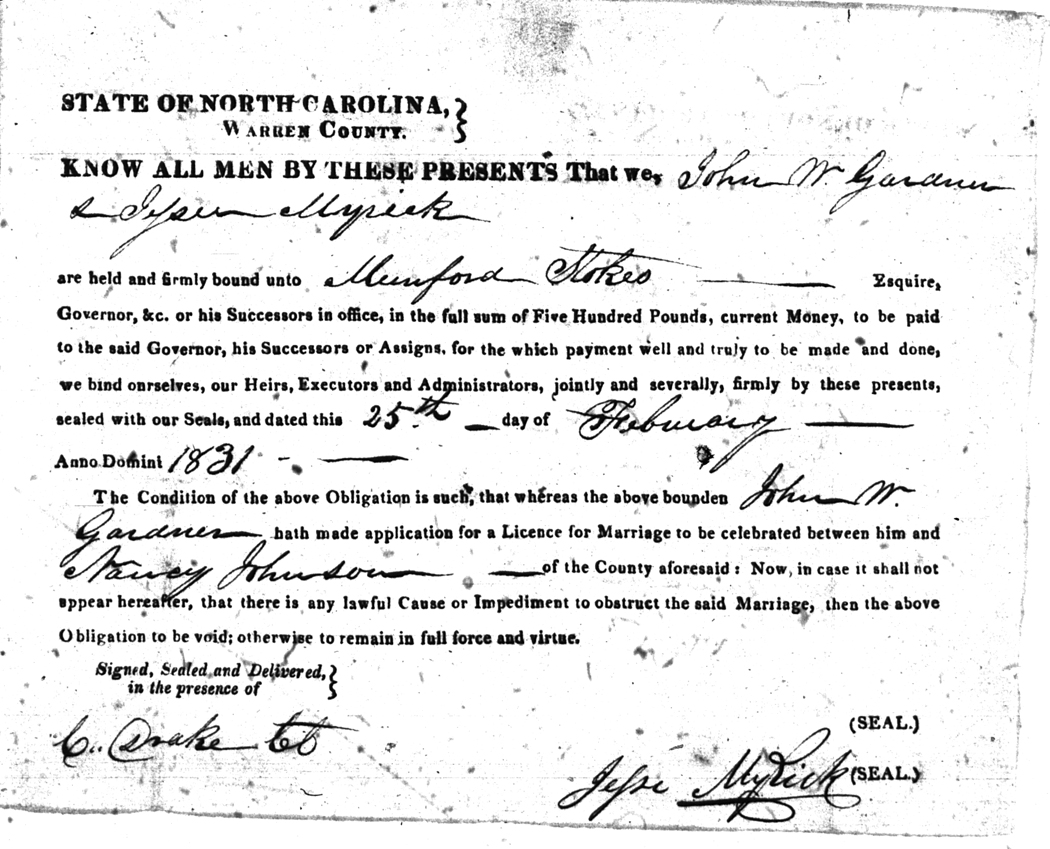 STATE OF NORTH CAROLINA,
WARREN COUNTY.
KNOW ALL MEN BY THESE PRESENTS That we, John W. Gardner
& Jesse Myrick
are held and firmly bound unto Munford Stokes Esquire,
Governor, &c. or his Successors in office, in the full sum of Five Hundred Pounds, current Money, to be paid
to the said Governor, his Successors or Assigns, for the which payment well and truly to be made and done,
we bind onrselves, our Heirs, Executors and Administrators, jointly and severally, firmly by these presents,
sealed with our Seals, and dated this 25th day of February
Anno Domini 1831
The Condition of the above Obligation is such, that whereas the above bounden John W.
Gardner hath made application for a Licence for Marriage to be celebrated between him and
Nancy Johnson of the County aforesaid: Now, in case it shall not
appear hereafter, that there is any lawful Cause or Impediment to obstruct the said Marriage, then the above
Obligation to be void; otherwise to remain in full force and virtue.
Signed, Sealed and Delivered,
in the presence of
(SEAL.)
C. Drake
Jesse Myrick (SEAL.)